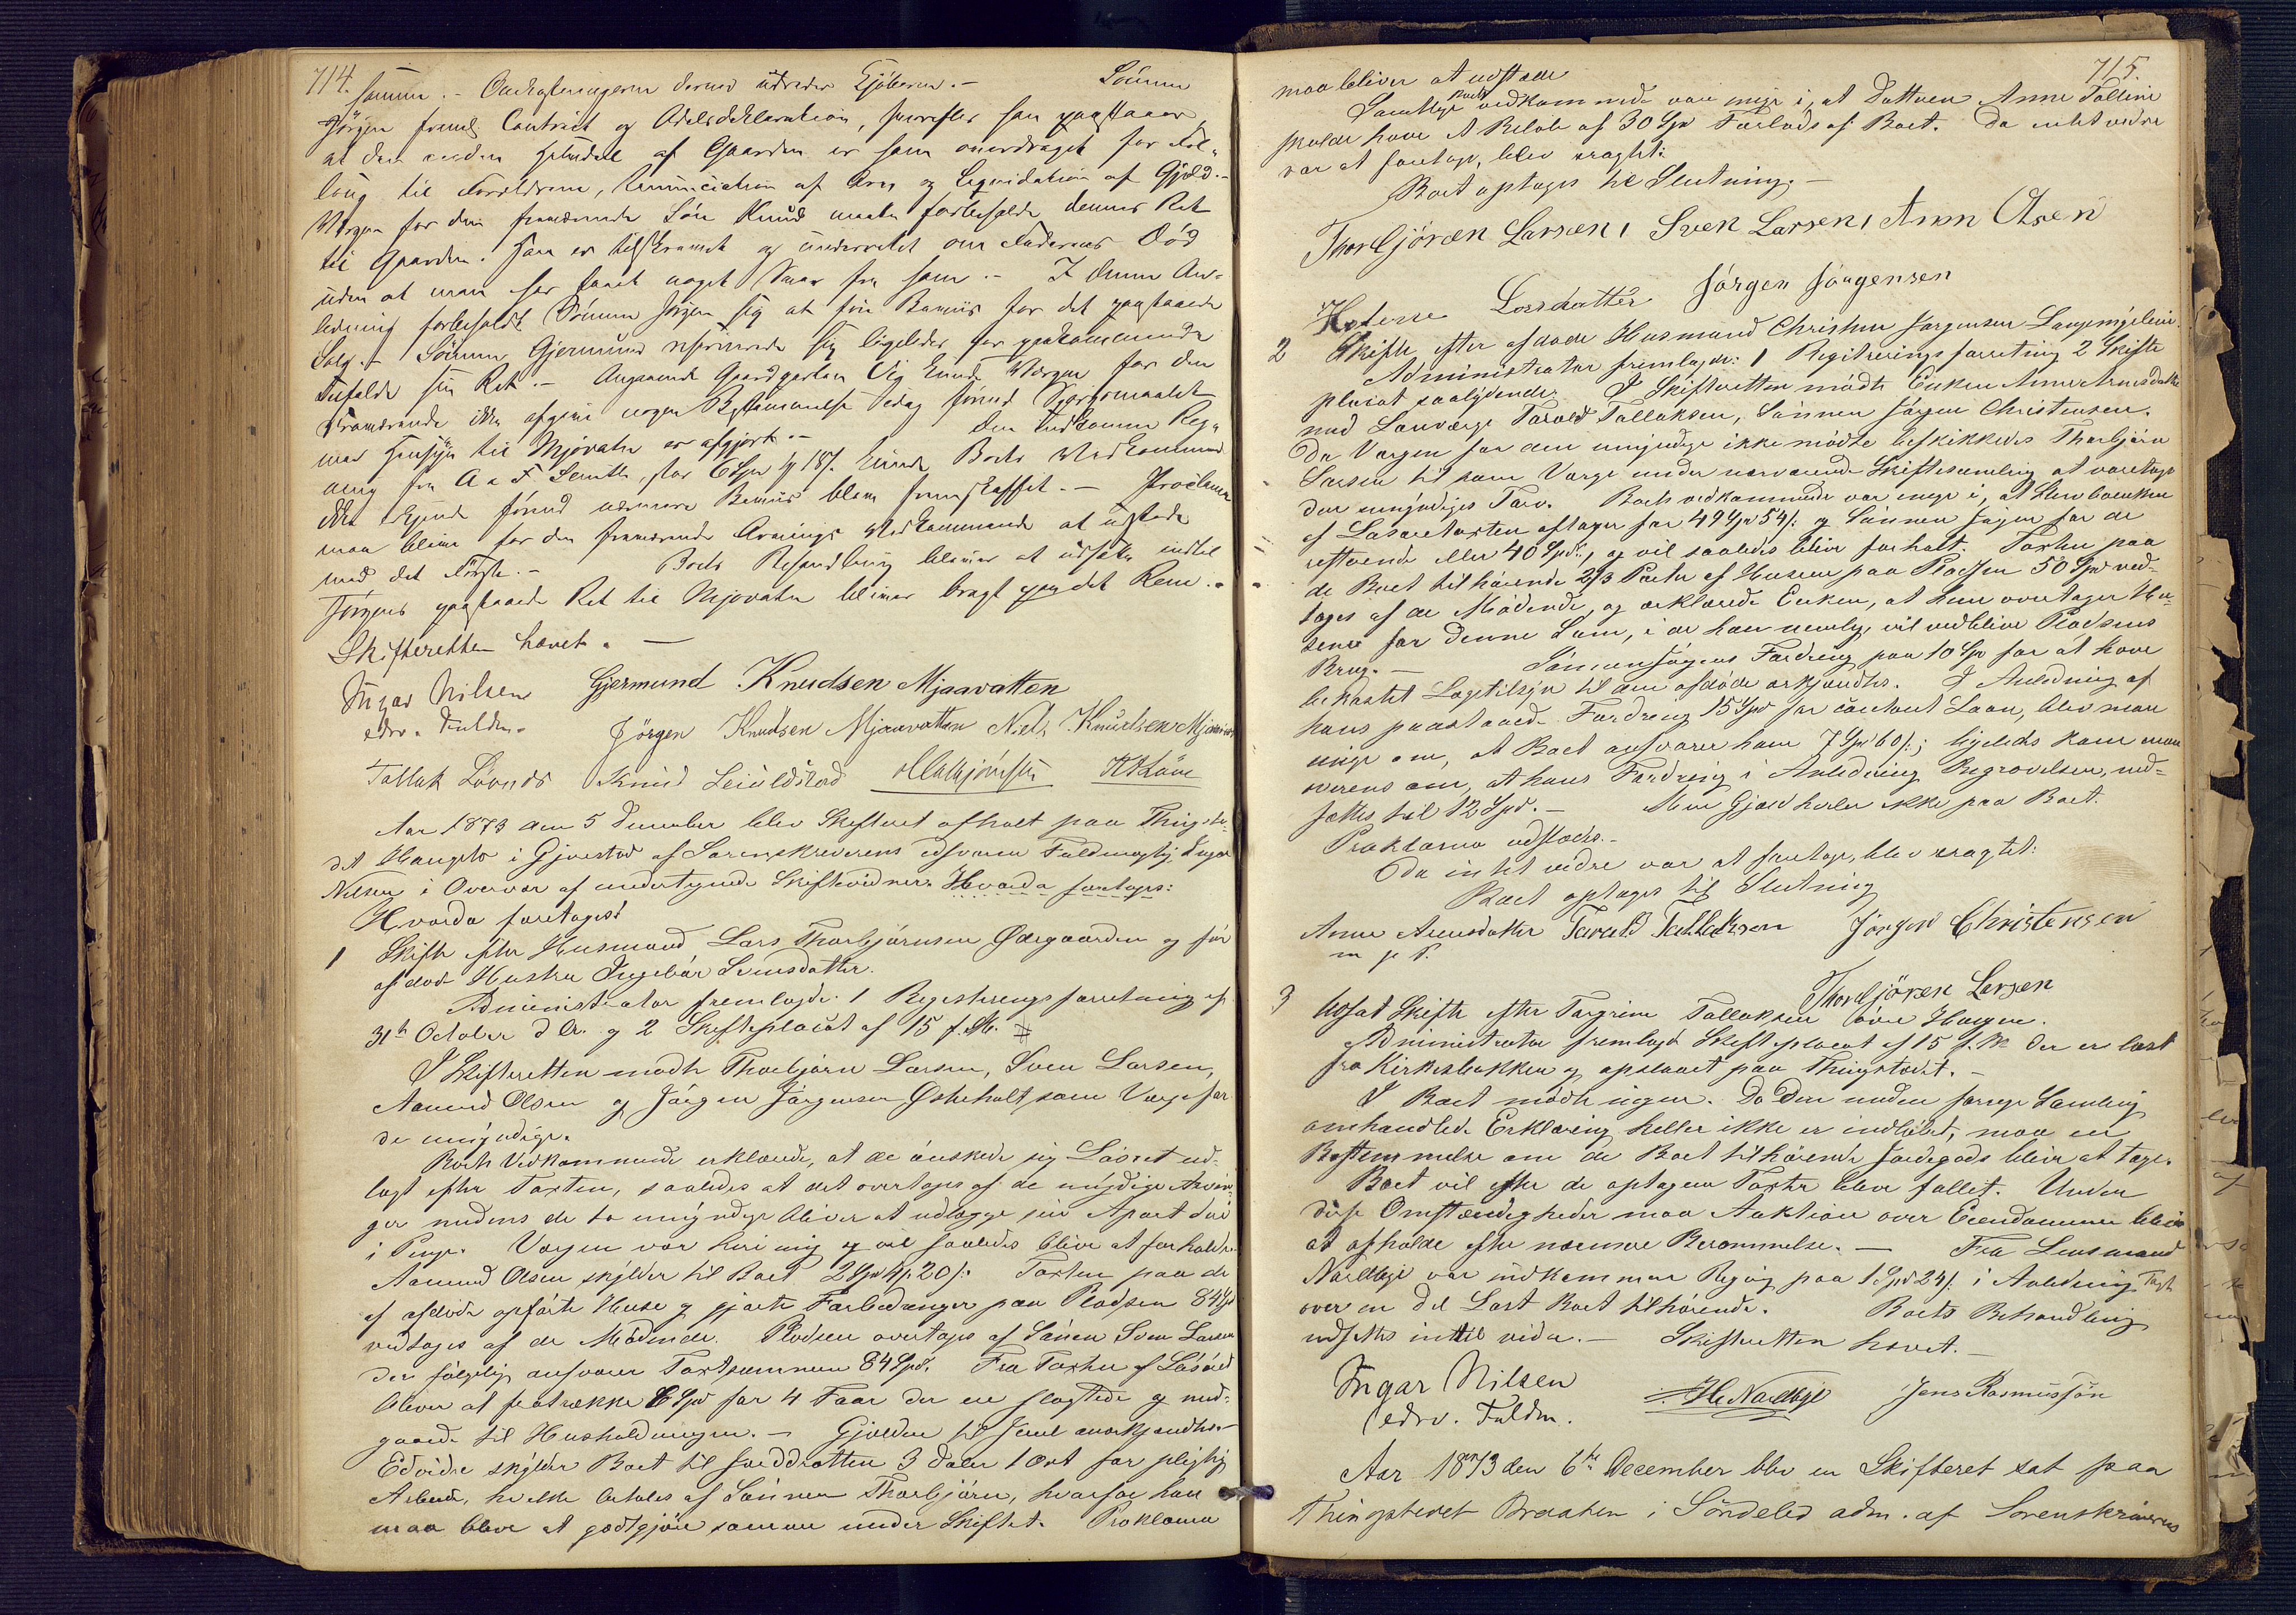 714.
samme. - Omkostningerne derved udreder Kjøberen. - Sønnen
Jörgen freml. Contract og Odelsdeklaration, hvorefter han paastaaer,
at den anden Halvdel af Gaarden er ham overdraget for Fol-
laug til Forældrene, Renunciation af Arv og Liquidation af Gjæld. -
Værgen for den fraværende Sön Knud maatte forbeholde dennes Ret
til Gaarden. Han er tilskrevet og underrettet om Faderens Död
uden at man har faaet noget Svar fra ham. - I denne An-
ledning forbeholdt Sönnen Jörgen sig at före Beviis for det paastaaede
Salg. - Sönnen Gjermund reserverede sig ligeledes for paakommende
Tilfælde sin Ret. - Angaaende Gaardparten Vig kunde Værgen for den
Fraværende ikke afgive nogen Bestemmelse idag förend Spörgsmaalet
med Hensyn til Mjovatn er afgjort. - Den indkomne Reg-
ning fra A & F Smith, stor 6 Spd 18 s. kunde Boets Vedkommende
ikke erkjende förend nærmere Beviis blev fremskaffet. - Proclama
maa blive for den fraværende Arvings Vedkommende at udstede
med det Förste. - Boets Behandling bliver at udsætte indtil
Jörgens paastaaede Ret til Mjovatn bliver bragt paa det Rene. -
Skifteretten hævet. -
Ingar Nilsen Gjermund Knudsen Mjaavatten
edsv. Fuldm. Jörgen Knudsen Mjaavatten Niels Knudsen
Tallak Knud
Aar 1873 den 5 December blev Skifteret afholt paa Thingste-
det Haugelo i Gjerestad af Sorenskriverens edsvorne Fuldmægtig Ingar
Nilsen i Overvær af undertegnede Skiftevidner. Hvorda foretoges:
Hvorda foretoges:
1 Skifte efter Husmand Lars Thorbjörnsen Ødegaarden og för
afdøde Hustru Ingebör Svensdatter.
Administrator fremlagde: 1 Registreringsforretning af
31te October d. A. og 2 Skifteplacat af 15 f. M. #
I Skifteretten mødte Thorbjørn Larsen, Sven Larsen,
Aanund Olsen og Jørgen Jørgensen Østeholt, som Værge for
de umyndige.
Boets Vedkommende erklærede, at de ønskede sig Løsöret ud-
lagt efter Taxten, saaledes at det overtages af de myndige Arvin-
ger medens de to umyndige bliver at udlægge sin Apart deri
i Penge. Værgen var heri enig og vil saaledes blive at forholde.
Aanund Olsen skylder til Boet 2 Spd 4 20 s. Taxten paa de
af afdøde opførte Huse og gjorte Forbedringer paa Pladsen 84 Spd
vedtages af de Mødende. Pladsen overtages af Sønnen Sven Larsen
der følgelig ansvarer Taxtsummen 84 Spd. Fra Taxten af Løsöret
bliver at fratrække 6 Spd for 4 Faar der ere slagtede og med-
gaaede til Husholdningen. - Gjælden til anerkjendtes.
Edvidre skylder Boet til Jorddrotten 3 Daler 1 Ort for pligtig
Arbeide, hvilke betales af Sönnen Thorbjørn, hvorfor han
maa blive at godtgjøre samme under Skiftet. Proklama
715.
maa bliver at udstæde
Samtlige Boets Vedkommende vare enige i, at Datteren Anne Talline
skulde have et Beløb af 30 Spd Forlods af Boet. Da intet vidre
var at foretage, blev eragtet:
Boet optages til Slutning. -
Thorbjören Larsen, Sven Larsen, Anon Olsen
Jörgen Jörgensen
2 Skifte efter afdøde Husmand Christen Jørgensen Langmyrlien.
Administrator fremlagde: 1 Registreringsforretning 2 Skifte
placat saalydende. I Skifteretten mødte Enken Anne Arnesdatter
med Laugværge Tarald Tallaksen, Sønnen Jørgen Christensen.
Da Værgen for den umyndige ikke mødte beskikkedes Thorbjørn
Larsen til som Værge under nærværende Skiftesamling at varetage
den umyndiges Tarv. Boets vedkommende var enige i, at Enken
af Løsøretaxten aftager for 49 Spd 54 s. og Sønnen Jørgen for de
resterende eller 40 Spd., og vil saaledes blive forholt. Taxten paa
de Boet tilhørende 2/3 Parter af Husene paa Pladsen 50 Spd ved-
tages af de Mødende, og erklærede Enken, at hun overtager Hu-
sene for denne Sum, i det hun nemlig vil vedblive Pladsens
Brug. - Sønnen Jørgens Fordring paa 10 Spd for at have
bekostet Lægetilsyn til den afdøde erkjendtes. I Anledning af
hans paastaaede Fordring 15 Spd for contant Laan, blev man
enige om, at Boet ansvarer ham 7 Spd 60 s.; ligeledes kom man
overens om, at hans Fordring i Anledning Begravelsen, ned-
sættes til 12 Spd. - Mere Gjæld hviler ikke paa Boet.
Proklama udstædes. -
Da intet vidre var at foretage, blev eragtet:
Boet optages til Slutning
Anne Arnesdatter Tarald Tallaksen Jörgen Christensen
m. p. P.
Thorbjören Larsen
3 Udsat Skifte efter Torgrim Tallaksen øvre Haugen.
Administrator fremlagde Skifteplacat af 15 f. M. der er læst
fra Kirkebakken og opslaaet paa Thingstedet. -
I Boet mødte ingen. Da den under forrige Samling
omhandlede Erklæring heller ikke er indløbet, maa en
Bestemmelse om de Boet tilhørende Jordegods blive at tage.
Boet vil efter de optagne Taxter blive fallit. Under
disse Omstændigheder maa Auktion over Eiendommen blive
at afholde efter nærmere Berammelse. - Fra Lensmand
Nærdbye var indkommen Regning paa 1 Spd 24 s. i Anledning Taxt
over en Del Last Boet tilhørende. Boets Behandling
udsættes indtil videre. - Skifteretten hævet. -
Ingar Nilsen Jens Rasmussön
edsv. Fuldm.
Aar 1873 den 6te December blev en Skifteret sat paa
Thingstedet Braaten i Söndeled adm. af Sorenskriverens